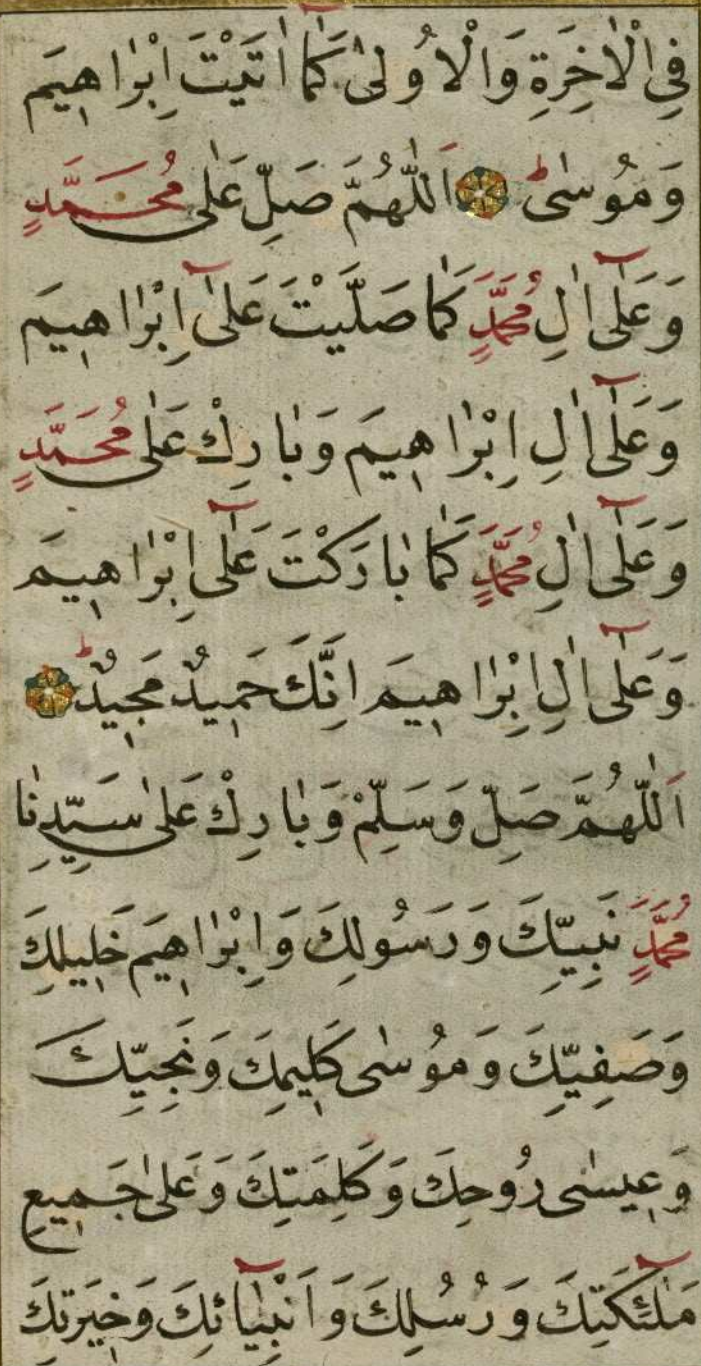 فِي الْاٰخِرَةِ وَالْاُولٰى كَمٰٓا اٰتَيْتَ اِبْرٰاهٖيمَ
وَمُوسٰى اَللّٰهُمَّ صَلِّ عَلٰى مُحَمَّدٍ
وَعَلٰٓى اٰلِ مُحَمَّدٍ كَمٰا صَلَّيْتَ عَلٰٓى اِبْرٰاهٖيمَ
وَعَلٰٓى اٰلِ اِبْرٰاهٖيمَ وَبٰارِكْ عَلٰى مُحَمَّدٍ
وَعَلٰٓى اٰلِ مُحَمَّدٍ كَمٰا بٰارَكْتَ عَلٰٓى اِبْرٰاهٖيمَ
وَعَلٰٓى اٰلِ اِبْرٰاهٖيمَ اِنَّكَ حَمٖيدٌ مَجٖيدٌ
اَللّٰهُمَّ صَلِّ وَسَلِّمْ وَبٰارِكْ عَلٰى سَيِّدِنٰا
مُحَمَّدٍ نَبِيِّكَ وَرَسُولِكَ وَاِبْرٰاهٖيمَ خَلٖيلِكَ
وَصَفِيِّكَ وَمُوسٰى كَلٖيمِكَ وَنَجِيِّكَ
وَعٖيسٰى رُوحِكَ وَكَلِمَتِكَ وَعَلٰى جَمٖيعِ
مَلٰٓئِكَتِكَ وَرُسُلِكَ وَاَنْبِيٰٓائِكَ وَخِيَرَتِكَ